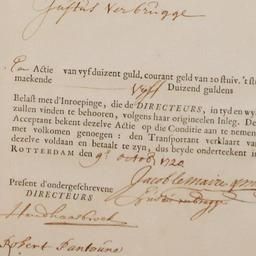 Justus Verbrugge
Een Actie van vyf duizent guld, courant geld van 20 stuiv. 't st
maekende Vyff Duizend guldens
Belast met d'Inroepinge, die de DIRECTEURS, in tyd en wy
zullen vinden te behooren, volgens haar origineelen Inleg. De
Acceptant bekent dezelve Actie op die Conditie aan te nemen
met volkomen genoegen: den Transportant verklaart van
dezelve voldaan en betaalt te zyn, dus beyde onderteekent in
ROTTERDAM den 9e octob 1720
Jacob le Maire
Present d'ondergeschrevene
DIRECTEURS
Robert Santoúne